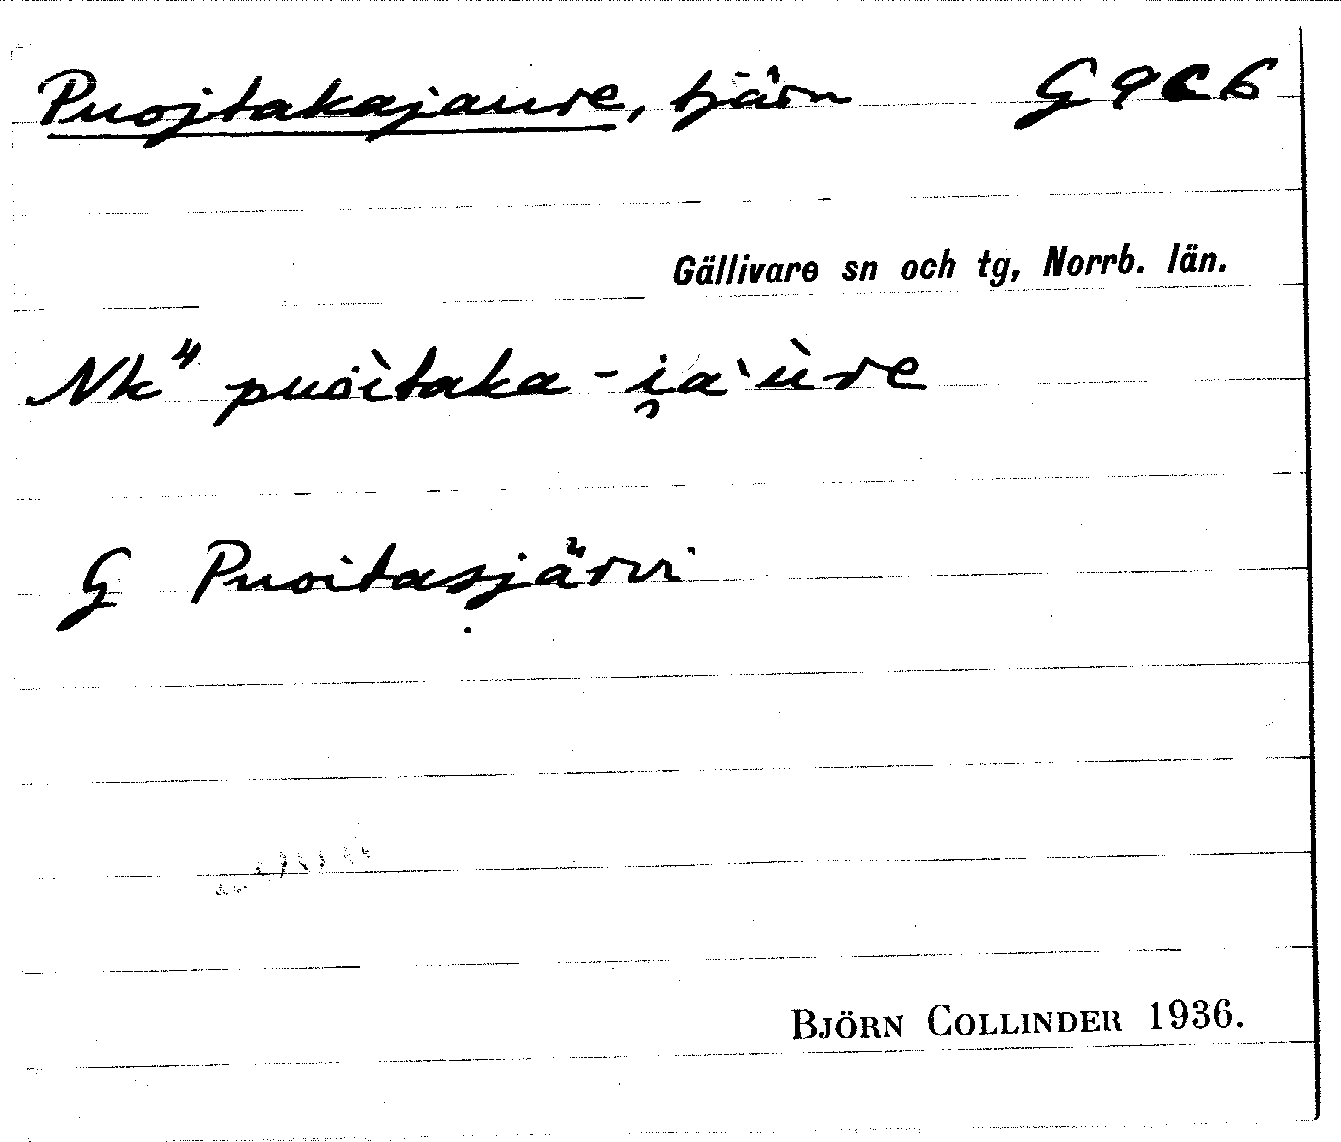 Puojtakajaure, tjärn G 9C6
Gällivare sn och tg, Norrb. län.
Nk" puoìtaka-i̯a`ùre
G Puoitasjärvi
BJÖRN COLLINDER 1936.